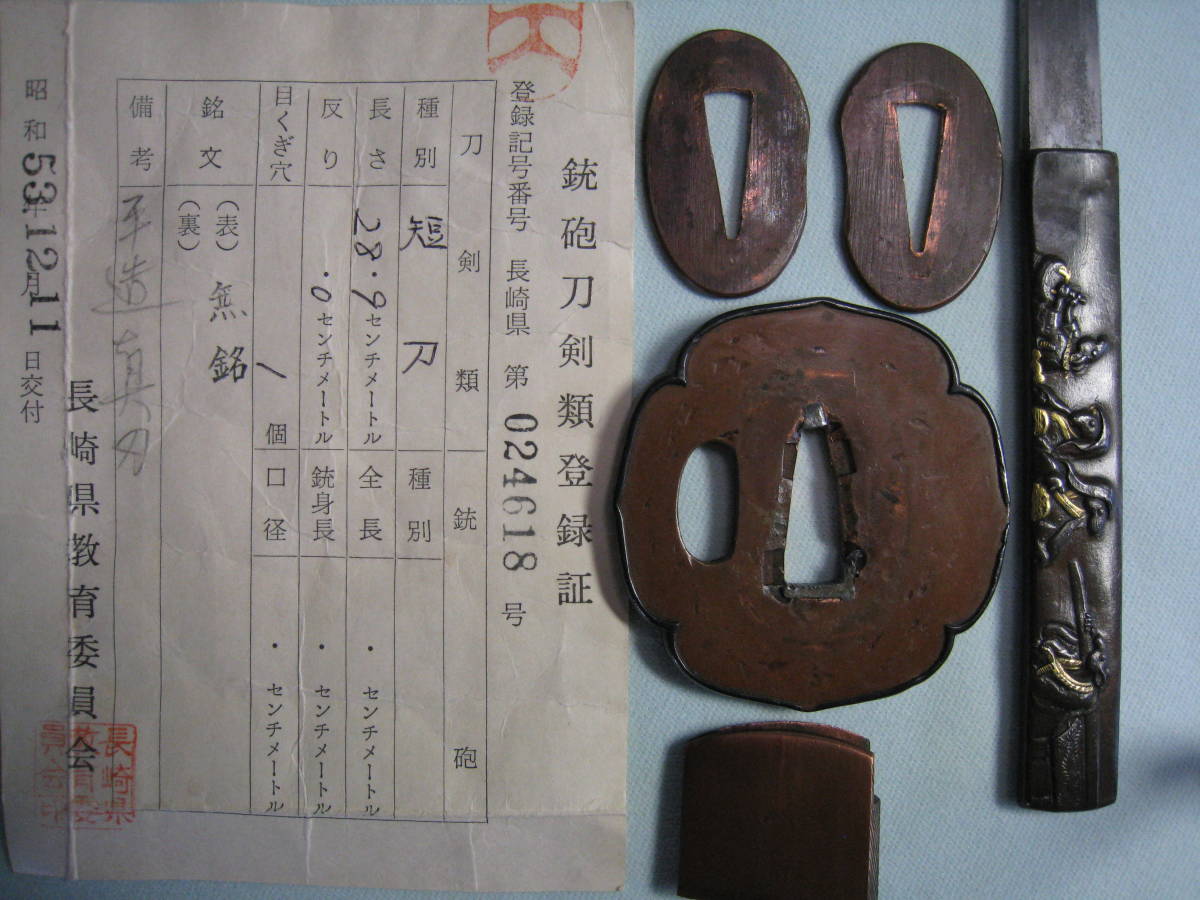 銃砲刀剣類登録証
登録記号番号 長崎県 第 024618 号
刀剣類 銃砲
種別 短刀 種別
長さ 28.9 センチメートル 全長 ・ センチメートル
反り ・0 センチメートル 銃身長 ・ センチメートル
目くぎ穴 1 個 口径 ・ センチメートル
銘文 (表) 無銘
(裏)
備考 平造真刀
昭和53年12月11日交付
長崎県教育委員会
長崎県
教育委
員会印